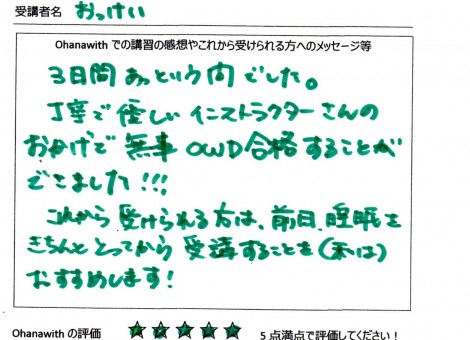 受講者名 おっけい
Ohanawith での講習の感想やこれから受けられる方へのメッセージ等
3日間あっという間でした。
丁寧で優しいインストラクターさんの
おかげで無事OWD合格することが
できました!!!
これから受けられる方は、前日、睡眠を
きちんととってから受講することを(私は)
おすすめします!
Ohanawith の評価 ★★★★★ 5 点満点で評価してください!